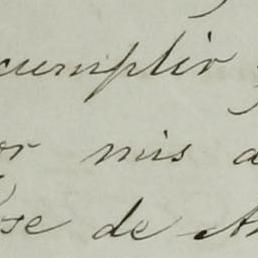 cumplir
or mis a
se de A